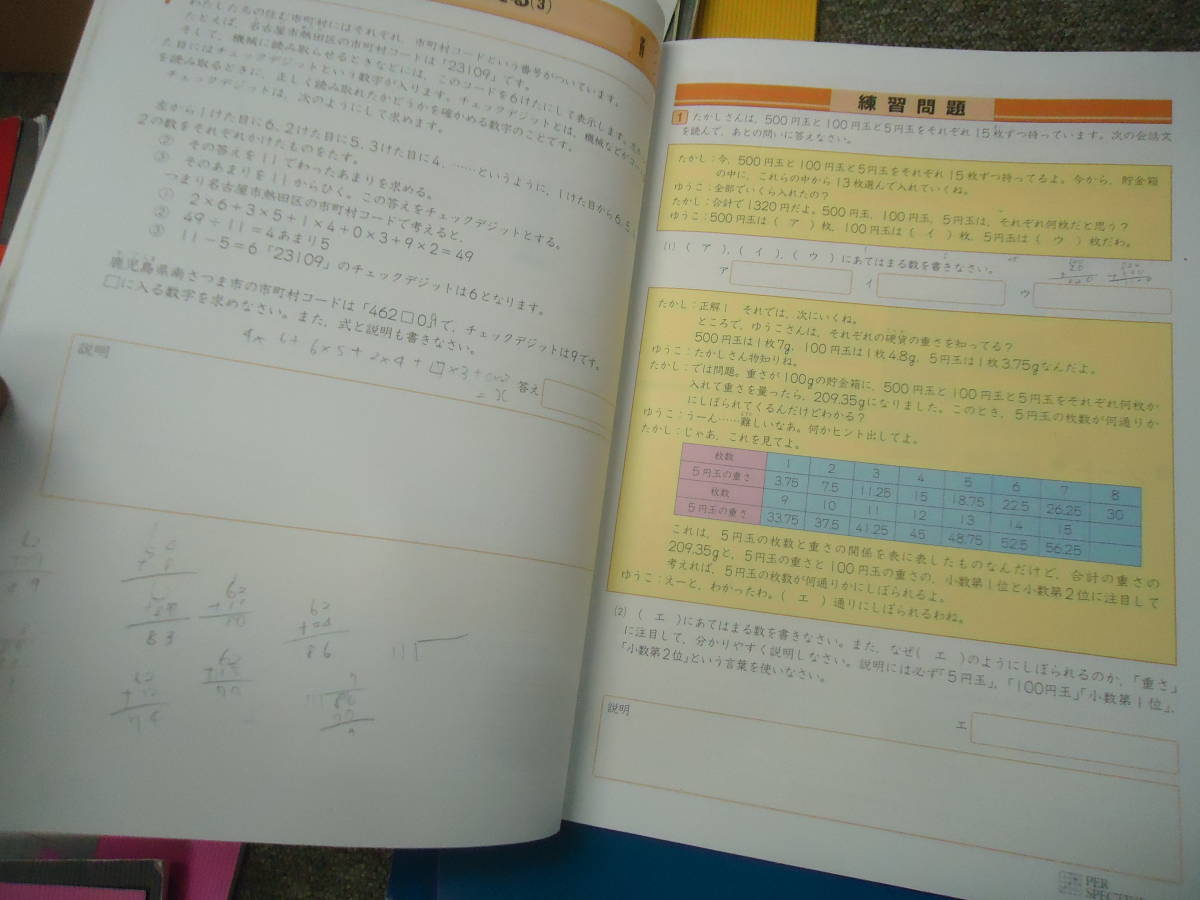 わたしたちの住む市町村にはそれぞれ、市町村コードという番号がついています。
たとえば、名古屋市熱田区の市町村コードは「23109」です。
そして、機械に読み取らせるときなどには、このコードを6けたにして表示します。
た目にはチェックデジットという数字が入ります。チェックデジットとは、機械などがコー
を読み取るときに、正しく読み取れたかどうかを確かめる数字のことです。
チェックデジットは、次のようにして求めます。
左から1けた目に6、2けた目に5、3けた目に4、……というように、1けた目から6、5、
2の数をそれぞれかけたものをたす。
② その答えを11でわったあまりを求める。
③ そのあまりを11からひく。この答えをチェックデジットとする。
つまり名古屋市熱田区の市町村コードで考えると、
① 2×6+3×5+1×4+0×3+9×2=49
② 49÷11=4あまり5
③ 11-5=6「23109」のチェックデジットは6となります。
鹿児島県南さつま市の市町村コードは「462□0」で、チェックデジットは9です。
□に入る数字を求めなさい。また、式と説明も書きなさい。
4×6+6×5+2×4+□×3+0×2
=x
答え
説明
62
83
62
70
62
86
11
62
74
練習問題
1 たかしさんは、500円玉と100円玉と5円玉をそれぞれ15枚ずつ持っています。次の会話文
を読んで、あとの問いに答えなさい。
たかし:今、500円玉と100円玉と5円玉をそれぞれ15枚ずつ持ってるよ。今から、貯金箱
の中に、これらの中から13枚選んで入れていくね。
ゆうこ:全部でいくら入れたの?
たかし:合計で1320円だよ。500円玉、100円玉、5円玉は、それぞれ何枚だと思う?
ゆうこ:500円玉は(ア)枚、100円玉は(イ)枚、5円玉は(ウ)枚だわ。
(1) (ア)、(イ)、(ウ)にあてはまる数を書きなさい。
ア
イ
ウ
たかし:正解! それでは、次にいくね。
ところで、ゆうこさんは、それぞれの硬貨の重さを知ってる?
500円玉は1枚7g、100円玉は1枚4.8g、5円玉は1枚3.75gなんだよ。
ゆうこ:たかしさん物知りね。
たかし:では問題。重さが100gの貯金箱に、500円玉と100円玉と5円玉をそれぞれ何枚か
入れて重さを量ったら、209.35gになりました。このとき、5円玉の枚数が何通りか
にしぼられてくるんだけどわかる?
ゆうこ:うーん……難しいなあ。何かヒント出してよ。
たかし:じゃあ、これを見てよ。
枚数 1 2 3 4 5 6 7 8
5円玉の重さ 3.75 7.5 11.25 15 18.75 22.5 26.25 30
枚数 9 10 11 12 13 14 15
5円玉の重さ 33.75 37.5 41.25 45 48.75 52.5 56.25
これは、5円玉の枚数と重さの関係を表に表したものなんだけど、合計の重さの
209.35gと、5円玉の重さと100円玉の重さの、小数第1位と小数第2位に注目して
考えれば、5円玉の枚数が何通りかにしぼられるよ。
ゆうこ:えーと、わかったわ。(エ)通りにしぼられるわね。
(2) (エ)にあてはまる数を書きなさい。また、なぜ(エ)のようにしぼられるのか、「重さ」
に注目して、分かりやすく説明しなさい。説明には必ず「5円玉」、「100円玉」「小数第1位」、
「小数第2位」という言葉を使いなさい。
説明
エ
PER